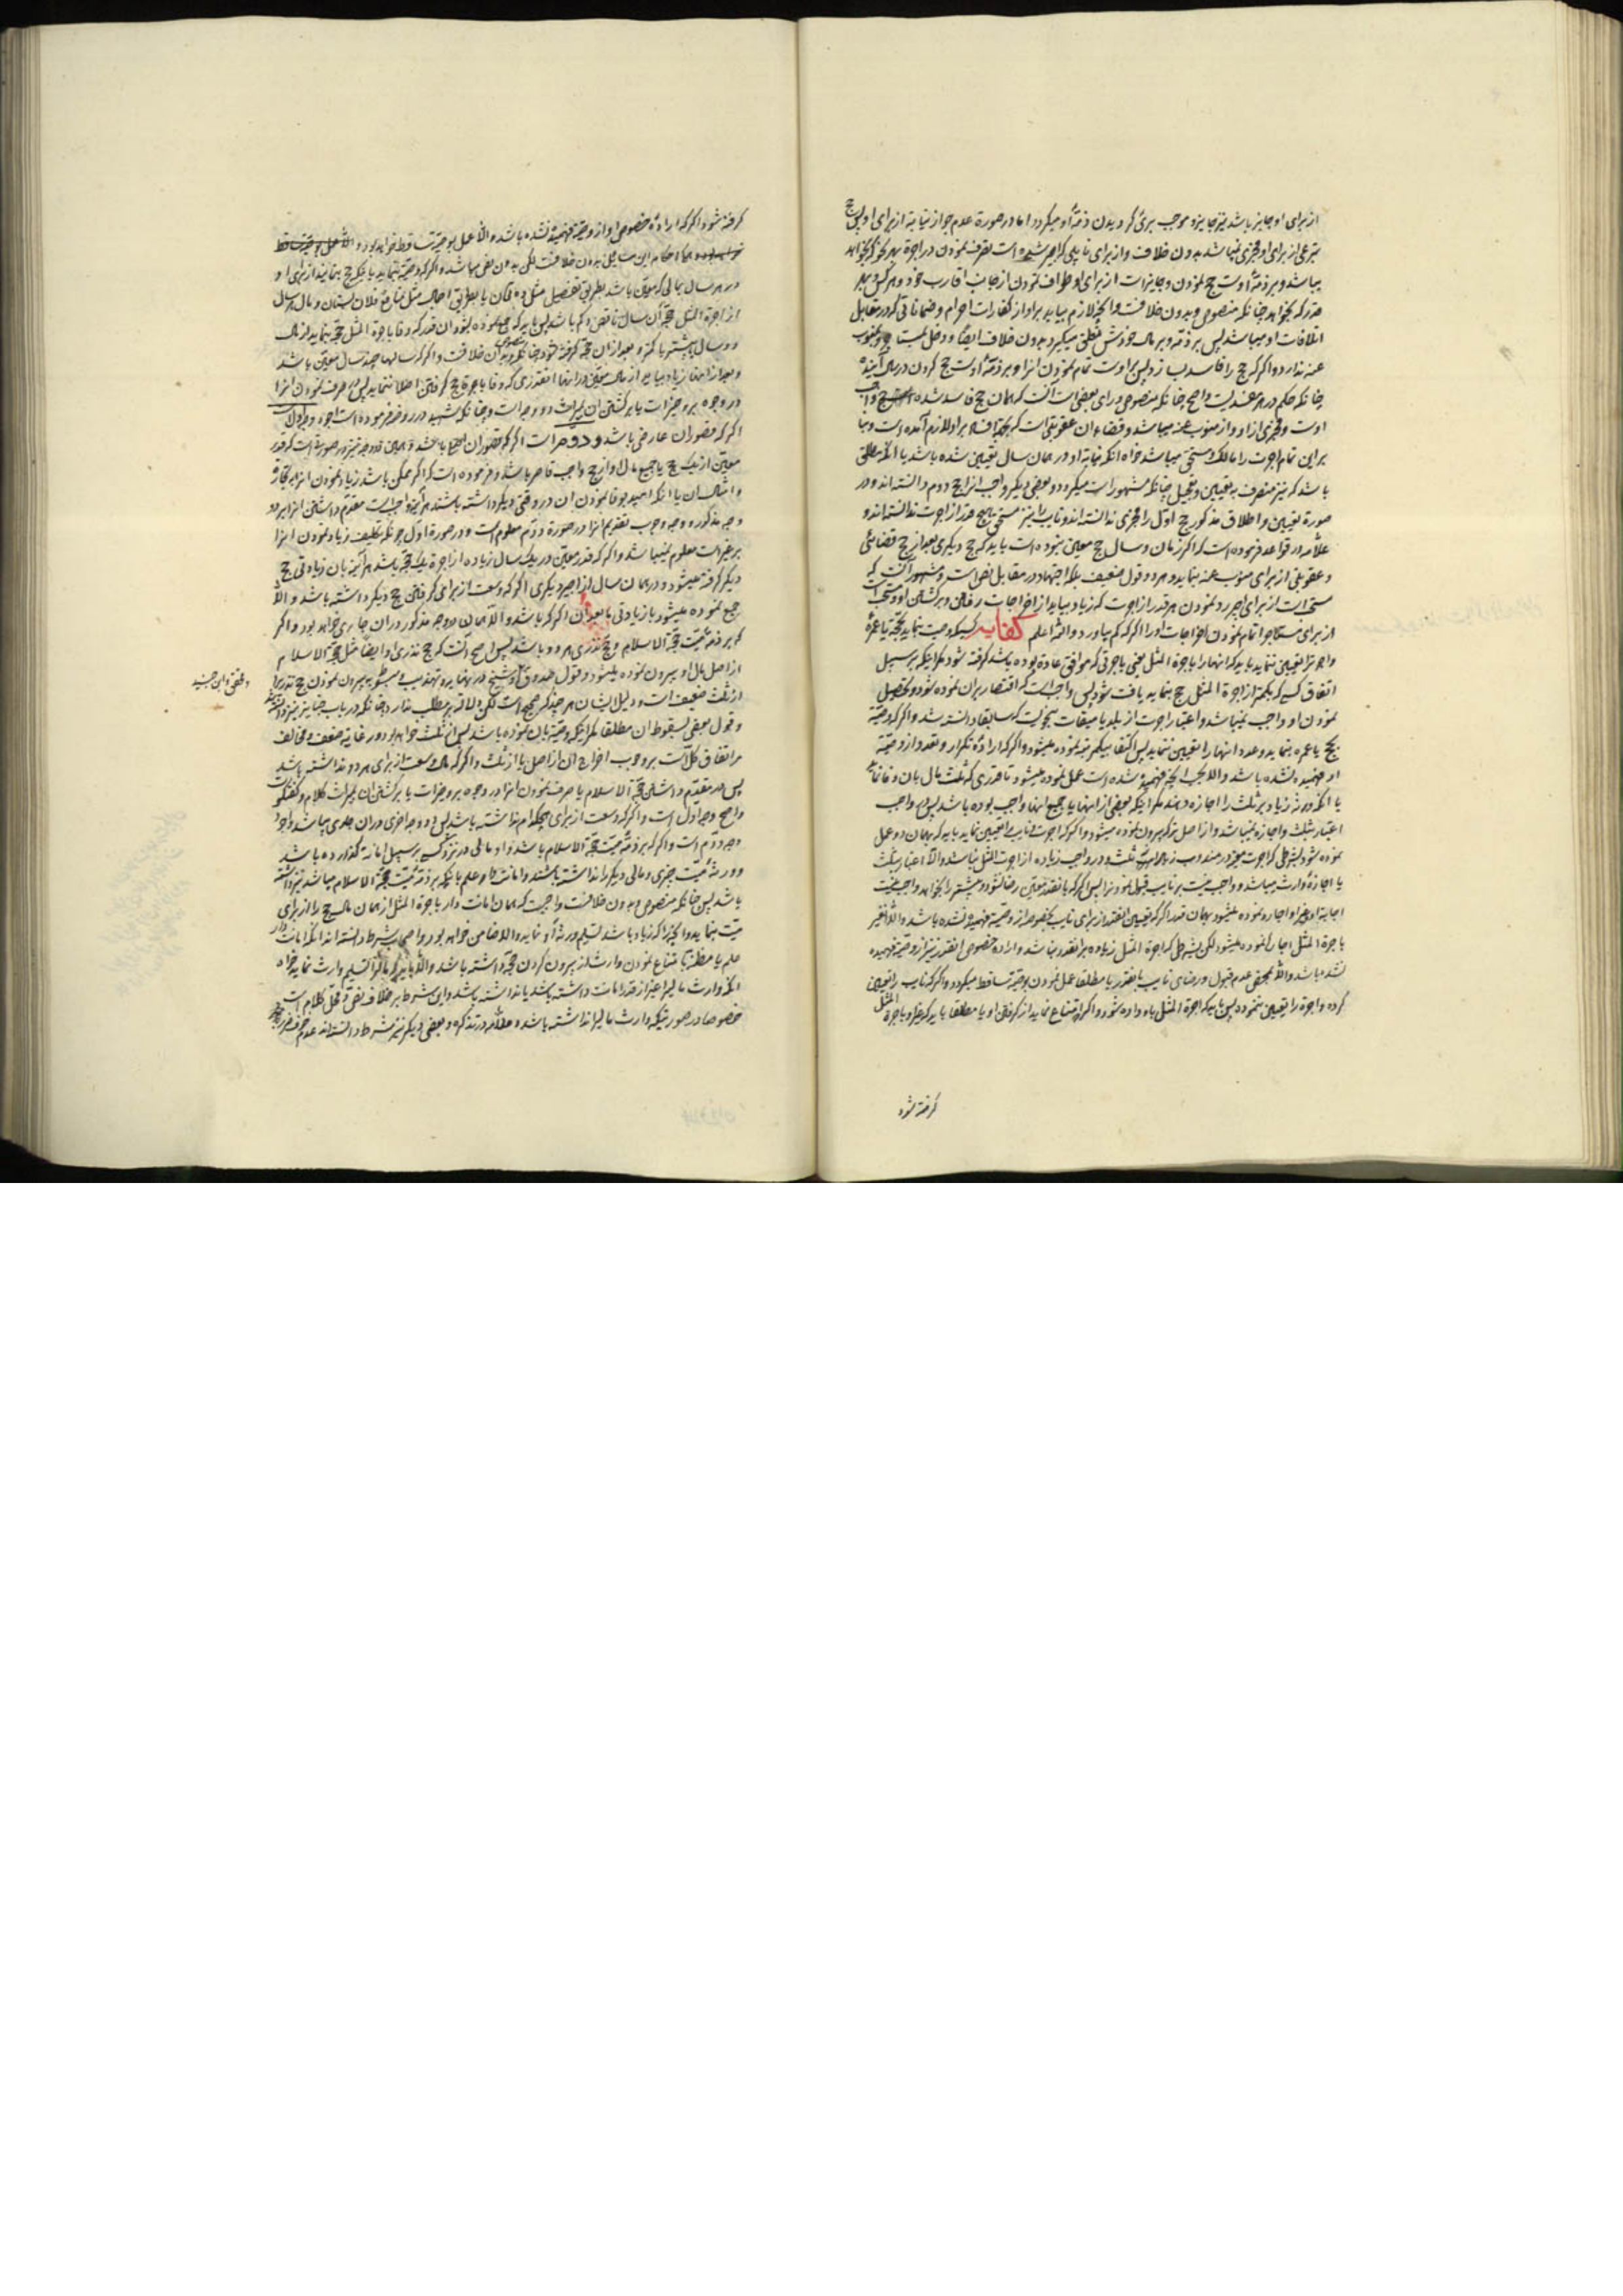 از برای او جایز باشد نیز جایز و موجب بریٔ کردیدن ذمهٔ او میکردد اما در صورة عدم جواز نیابة از برای او پس حج
تبرعی از برای او مجزی نمیباشد بدون خلاف و از برای نایبی که اجیر شده است تصرف نمودن در اجرة بهر نحو که بخواهد
میباشد و بر ذمهٔ اوست حج نمودن و جایز است از برای او طواف نمودن از جانب اقارب خود و هر کس و بهر
قدر که بخواهد چنانکه منصوص و بدون خلافست و آنچه لازم بیاید بر او از کفارات احرام و ضماناتی که در مقابل
اتلافات او میباشد پس بر ذمه و بر مال خودش تعلق میکیرد بدون خلاف ایضا و دخلی بمستاجر و منوب
عنه ندارد و اکر که حج را فاسد بسازد پس بر اوست تمام نمودن انرا و بر ذمهٔ اوست حج کردن در سال آینده
چنانکه حکم در هر مفسدیست واضح چنانکه منصوص و رای بعضی است آنست که همان حج فاسد شده حج واجب
اوست و مجزی از او و از منوب عنه میباشد و قضاء ان عقوبتی است که بجهة افساد بر او لازم آمده است و بنا
بر این تمام اجرت را مالک و مستحق میباشد خواه انکه نیابة او در همان سال تعیین شده باشد یا انکه مطلق
باشد که نیز منصرف به تعیین و تعجیل چنانکه مشهور است میکردد و بعضی دیکر واجب انرا حج دوم دانسته اند و در
صورة تعیین و اطلاق مذکور حج اول را مجزی ندانسته اند و نایب را نیز مستحق هیچ قدر از اجرت ندانسته اند و
علامه در قواعد فرموده است که اکر زمان و سال حج معین نبوده است باید که حج دیکری بعد از حج قضائی
و عقوبتی از برای منوب عنه بنماید و هر دو قول ضعیف بلکه اجتهاد در مقابل نص است و مشهور آنست که
مستحب است از برای اجیر رد نمودن هر قدر از اجرت که زیاد بیاید از اخراجات رفتن و برکشتن او و مستحب است
از برای مستاجر اتمام نمودن اخراجات او را اکر که کم بیاورد و الله اعلم کفایه کسیکه وصیت بنماید بحجة یا عمرة
و اجرتی را تعیین ننماید باید که انها را باجرة المثل یعنی باجرتی که موافق عادة بوده باشد کرفته شود مکر اینکه بر سبیل
اتفاق کسیکه بکمتر از اجرة المثل حج بنماید یافت شود پس واجبست که اقتصار بران نموده شود و تحصیل
نمودن او واجب نمیباشد و اعتبار اجرت از بلد یا میقات بنحویست که سابقا دانسته شد و اکر که وصیة
بحج یا عمره بنماید و عدد انها را تعیین ننماید پس اکتفا بیکمرتبه نموده میشود و اکر که ارادهٔ تکرار و تعدد از وصیة
او فهمیده نشده باشد و الا بحسب آنچه فهمیده شده است عمل نموده میشود تا قدری که ثلث مال بان وفا نماید
یا انکه ورثه زیاد بر ثلث را اجازه دهند مکر اینکه بعضی از انها یا جمیع انها واجب بوده باشد پس در واجب
اعتبار ثلث و اجازه نمیباشد و از اصل ترکه بیرون نموده میشود و اکر که اجرت و نایب را تعیین نماید باید که بهمان دو عمل
نموده شود بشرطی که اجرت مزبور در مندوب زیاده از ثلث و در واجب زیاده از اجرت المثل نباشد و الا اعتبار بثلث
یا اجازهٔ وارث میباشد و واجب نیست بر نایب قبول نمودن پس اکر که بانقدر معین رضا نشود و بیشتر را بخواهد واجب نیست
اجابة او و غیر او اجاره نموده میشود بهمان قدر اکر که تعیین انقدر از برای نایب بخصوصه از وصیة فهمیده نشده باشد و الا غیر
باجرة المثل اجاره نموده میشود لکن بشرطی که اجرة المثل زیاده بر انقدر نباشد و ارادهٔ خصوص انقدر نیز از وصیة فهمیده
نشده باشد و الا بمحض عدم قبول و رضای نایب بانقدر یا مطلقا عمل نمودن بوصیة ساقط میکردد و اکر که نایب را تعیین
کرده و اجرة را تعیین ننموده پس باید که اجرة المثل باو داده شود و اکر امتناع نماید از کرفتن او یا مطلقا باید که غیر او باجرة المثل
کرفته شود
کرفته شود اکر که ارادهٔ خصوص او از وصیة فهمیده نشده باشد و الا عمل بوصیة ساقط خواهد بود
احکام این مسایل بدون خلافست لکن بدون نص میباشد و اکر که وصیة بنماید باینکه حج بنمایند از برای او
در هر سال بمالی که معین باشد بطریق تفصیل مثل ده تمان یا بطریق اجمال مثل منافع فلان بستان و مال هر سال
از اجرة المثل حجهٔ آن سال ناقص و کم باشد پس باید که جمع نموده بشود ان قدر که وفا باجرة المثل حجة بنماید از مال
دو سال بیشتر یا کمتر و بعد از ان حجة کرفته شود چنانکه منصوص و بدون خلافست و اکر که سالها چند سال معین باشد
و بعد از انها زیاد بیاید از مال معین در انها انقدری که وفا باجرة حج کرفتن اصلا ننماید پس صرف نمودن انرا
در وجوه بر و خیرات یا برکشتن ان بمیراث دو وجه است چنانکه شهید در دروس فرموده است وجه اول
اکر که قصور ان عارضی باشد و دوم است اکر که قصور ان اصلی باشد و همین دو وجه نیز در صورتیست که قدر
معین از یک حج یا جمیع مال او از حج واجب قاصر باشد و فرموده است که اکر ممکن باشد زیاد نمودن انرا بتجارة
و امثال ان یا انکه امید بوفا نمودن ان در وقتی دیکر داشته باشند هر آینه واجبست مقدم داشتن انرا بر دو
وجه مذکوره و وجه وجوب تقدیم انرا در صورة دوم معلوم است و در صورة اول چونکه تکلیف زیاد نمودن انرا
بر غیر است معلوم نمیباشد و اکر که قدر معین در یک سال زیاده از اجرة یک حجة باشد هر آینه بان زیادتی حج
دیکر کرفته میشود در همان سال از اجیر دیکری اکر که وسعت از برای کرفتن حج دیکر داشته باشد و الا
جمع نموده میشود با زیادتی ما بعد ان اکر که باشد و الا همان دو وجه مذکور در ان جاری خواهد بود و اکر
که بر ذمهٔ میت حجة الاسلام و حج نذری هر دو باشد پس اصح آنست که حج نذری او ایضا مثل حجة الاسلام
از اصل مال او بیرون نموده میشود و قول صدوق و شیخ در نهایه و تهذیب و مبسوط به بیرون نمودن حج نذری
و محقق و ابن جنید
از ثلث ضعیف است و دلیل ایشان هر چند که صحیح است لکن دلالة بر مطلب ندارد چنانکه در باب جنایز نیز دانسته شد
و قول بعضی بسقوط ان مطلقا مکر اینکه وصیة بان نموده باشد پس از ثلث خواهد بود در غایة ضعف و مخالف
مر اتفاق کل است بر وجوب اخراج ان از اصل یا از ثلث و اکر که مال وسعت از برای هر دو نداشته باشد
پس در مقدم داشتن حجة الاسلام یا صرف نمودن انرا در وجوه بر و خیرات یا برکشتن ان بمیراث کلام و کفتکو است
و اصح وجه اول است و اکر که وسعت از برای هیچکدام نداشته باشد پس دو وجه اخری در ان جاری میباشد و اجود
وجه دوم است و اکر که بر ذمهٔ میت حجة الاسلام باشد و او مالی در نزد کسی بر سبیل امانة کذارده باشد
و ورثهٔ میت چیزی و مالی دیکر را نداشته باشند و امانت دار علم باینکه بر ذمهٔ میت حجة الاسلام میباشد نیز داشته
باشد پس چنانکه منصوص و بدون خلافست واجبست که همان امانت دار باجرة المثل از همان مال حج را از برای
میت بنماید و انچه را که زیاد باشد تسلیم ورثهٔ او نماید و الا ضامن خواهد بود و اصحاب شرط دانسته اند انکه امانت دار
علم یا مظنه بامتناع نمودن وارث از بیرون کردن حجة داشته باشد و الا باید که مال را تسلیم وارث نماید خواه
انکه وارث مالی را غیر از قدر امانت داشته باشد یا نداشته باشد و این شرط بر خلاف نص و محل کلام است
خصوصا در صورتیکه وارث مالی را نداشته باشد و علامه در تذکره و بعضی دیکر نیز شرط دانسته اند عدم خوف ضرر